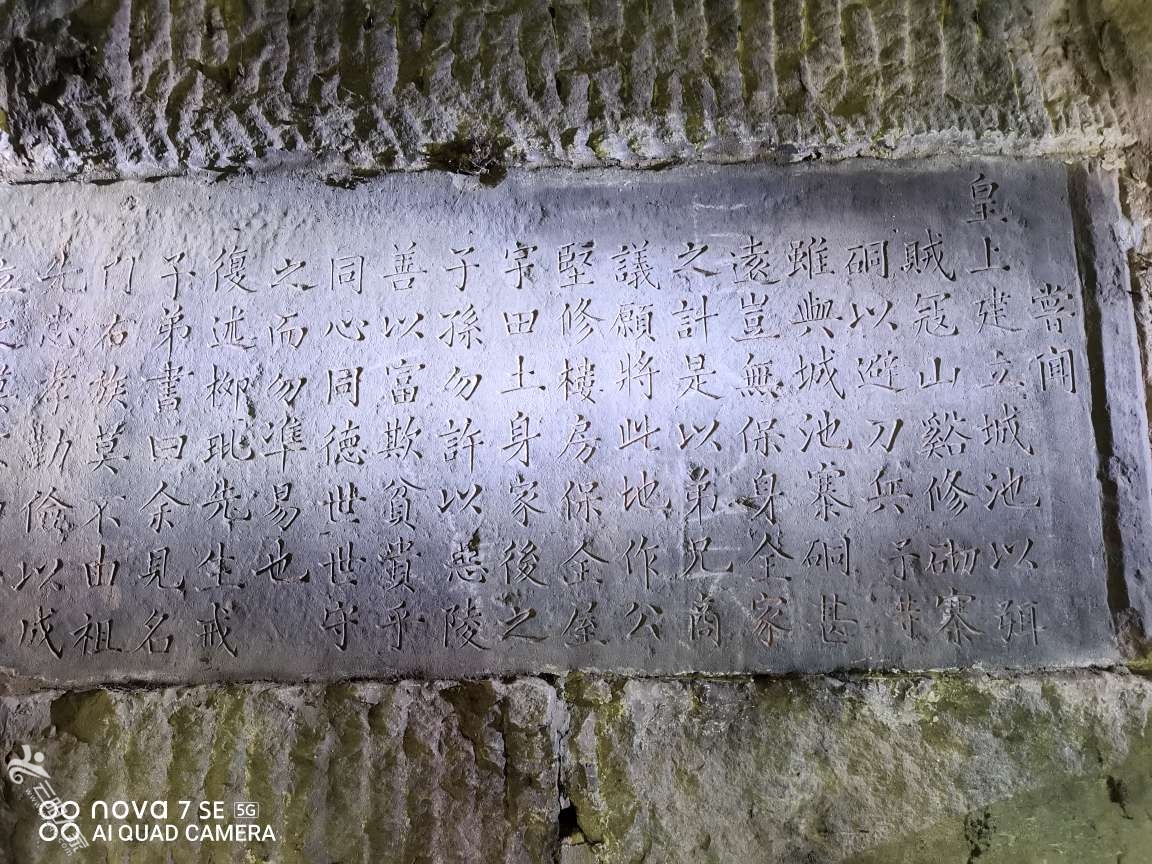 嘗聞
皇上建立城池以弭
賊冦山谿修砌寨
硐以避刀兵予等
雖與城池寨硐甚
遠豈無保身全家
之計是以弟兄商
議願將此地作公
堅修樓房保全屋
宇田土身家後之
子孫勿許以惡陵
善以富欺貧貴乎
同心同德世世守
之而勿準易也
復述柳玭先生戒
子弟書曰余見名
门右族莫不由祖
先忠孝勤儉以成
立
nova 7 SE 5G
AI QUAD CAMERA